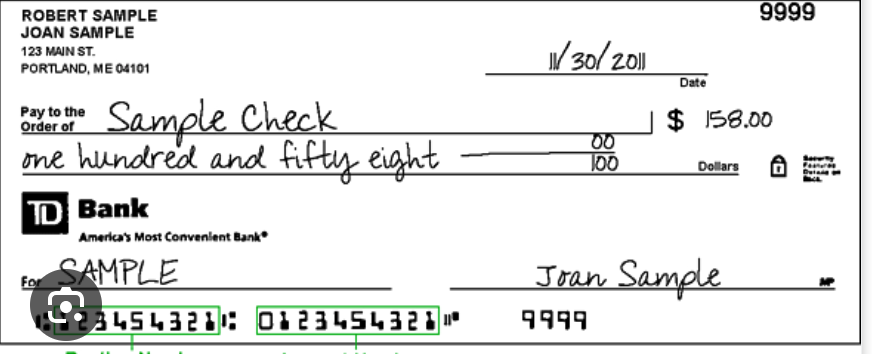 ROBERT SAMPLE 9999
JOAN SAMPLE
123 MAIN ST.
PORTLAND, ME 04101
11/30/2011
Date
Pay to the
Order of Sample Check $ 158.00
one hundred and fifty eight 00/100 Dollars
Security
Features
Details on
Back.
TD Bank
America's Most Convenient Bank®
For SAMPLE Joan Sample MP
23454321 0123454321 9999